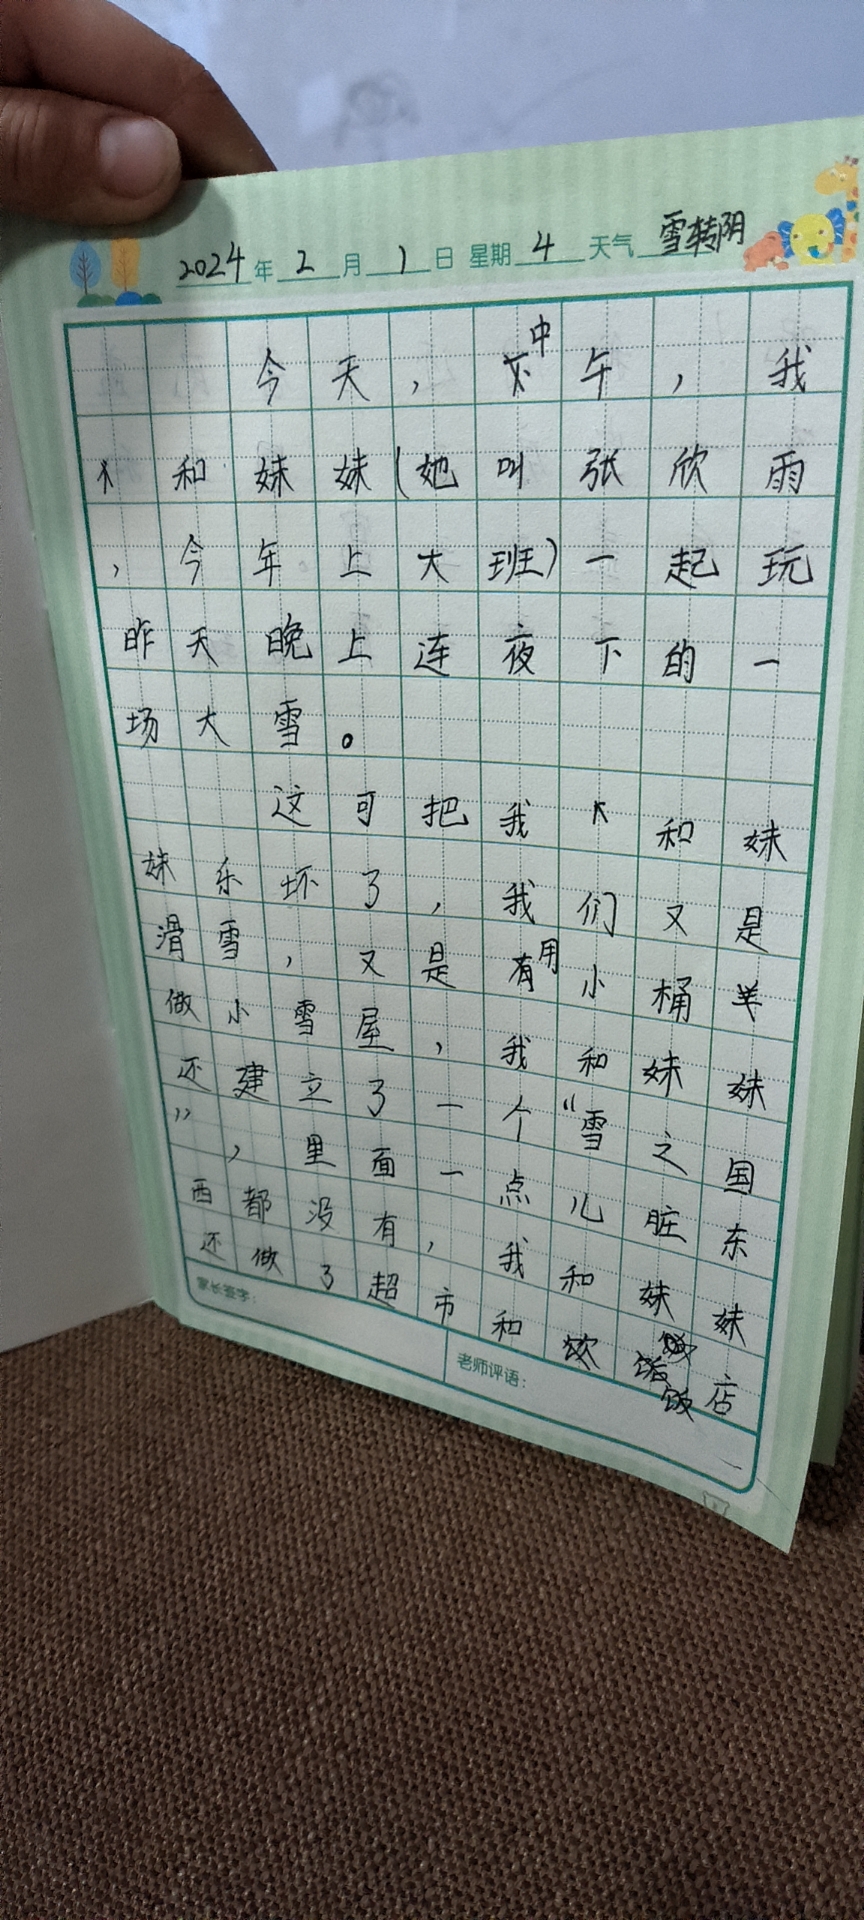 2024年2月1日 星期4 天气雪转阴
今天，中午，我
和妹妹(她叫张欣雨
，今年上大班)一起玩
昨天晚上连夜下的一
场大雪。
这可把我和妹
妹乐坏了，我们又是
滑雪，又是用小桶
做小雪屋，我和妹妹
还建立了一个“雪之国
”，里面一点儿脏东
西都没有，我和妹妹
还做了超市和饭店
家长签字：
老师评语：